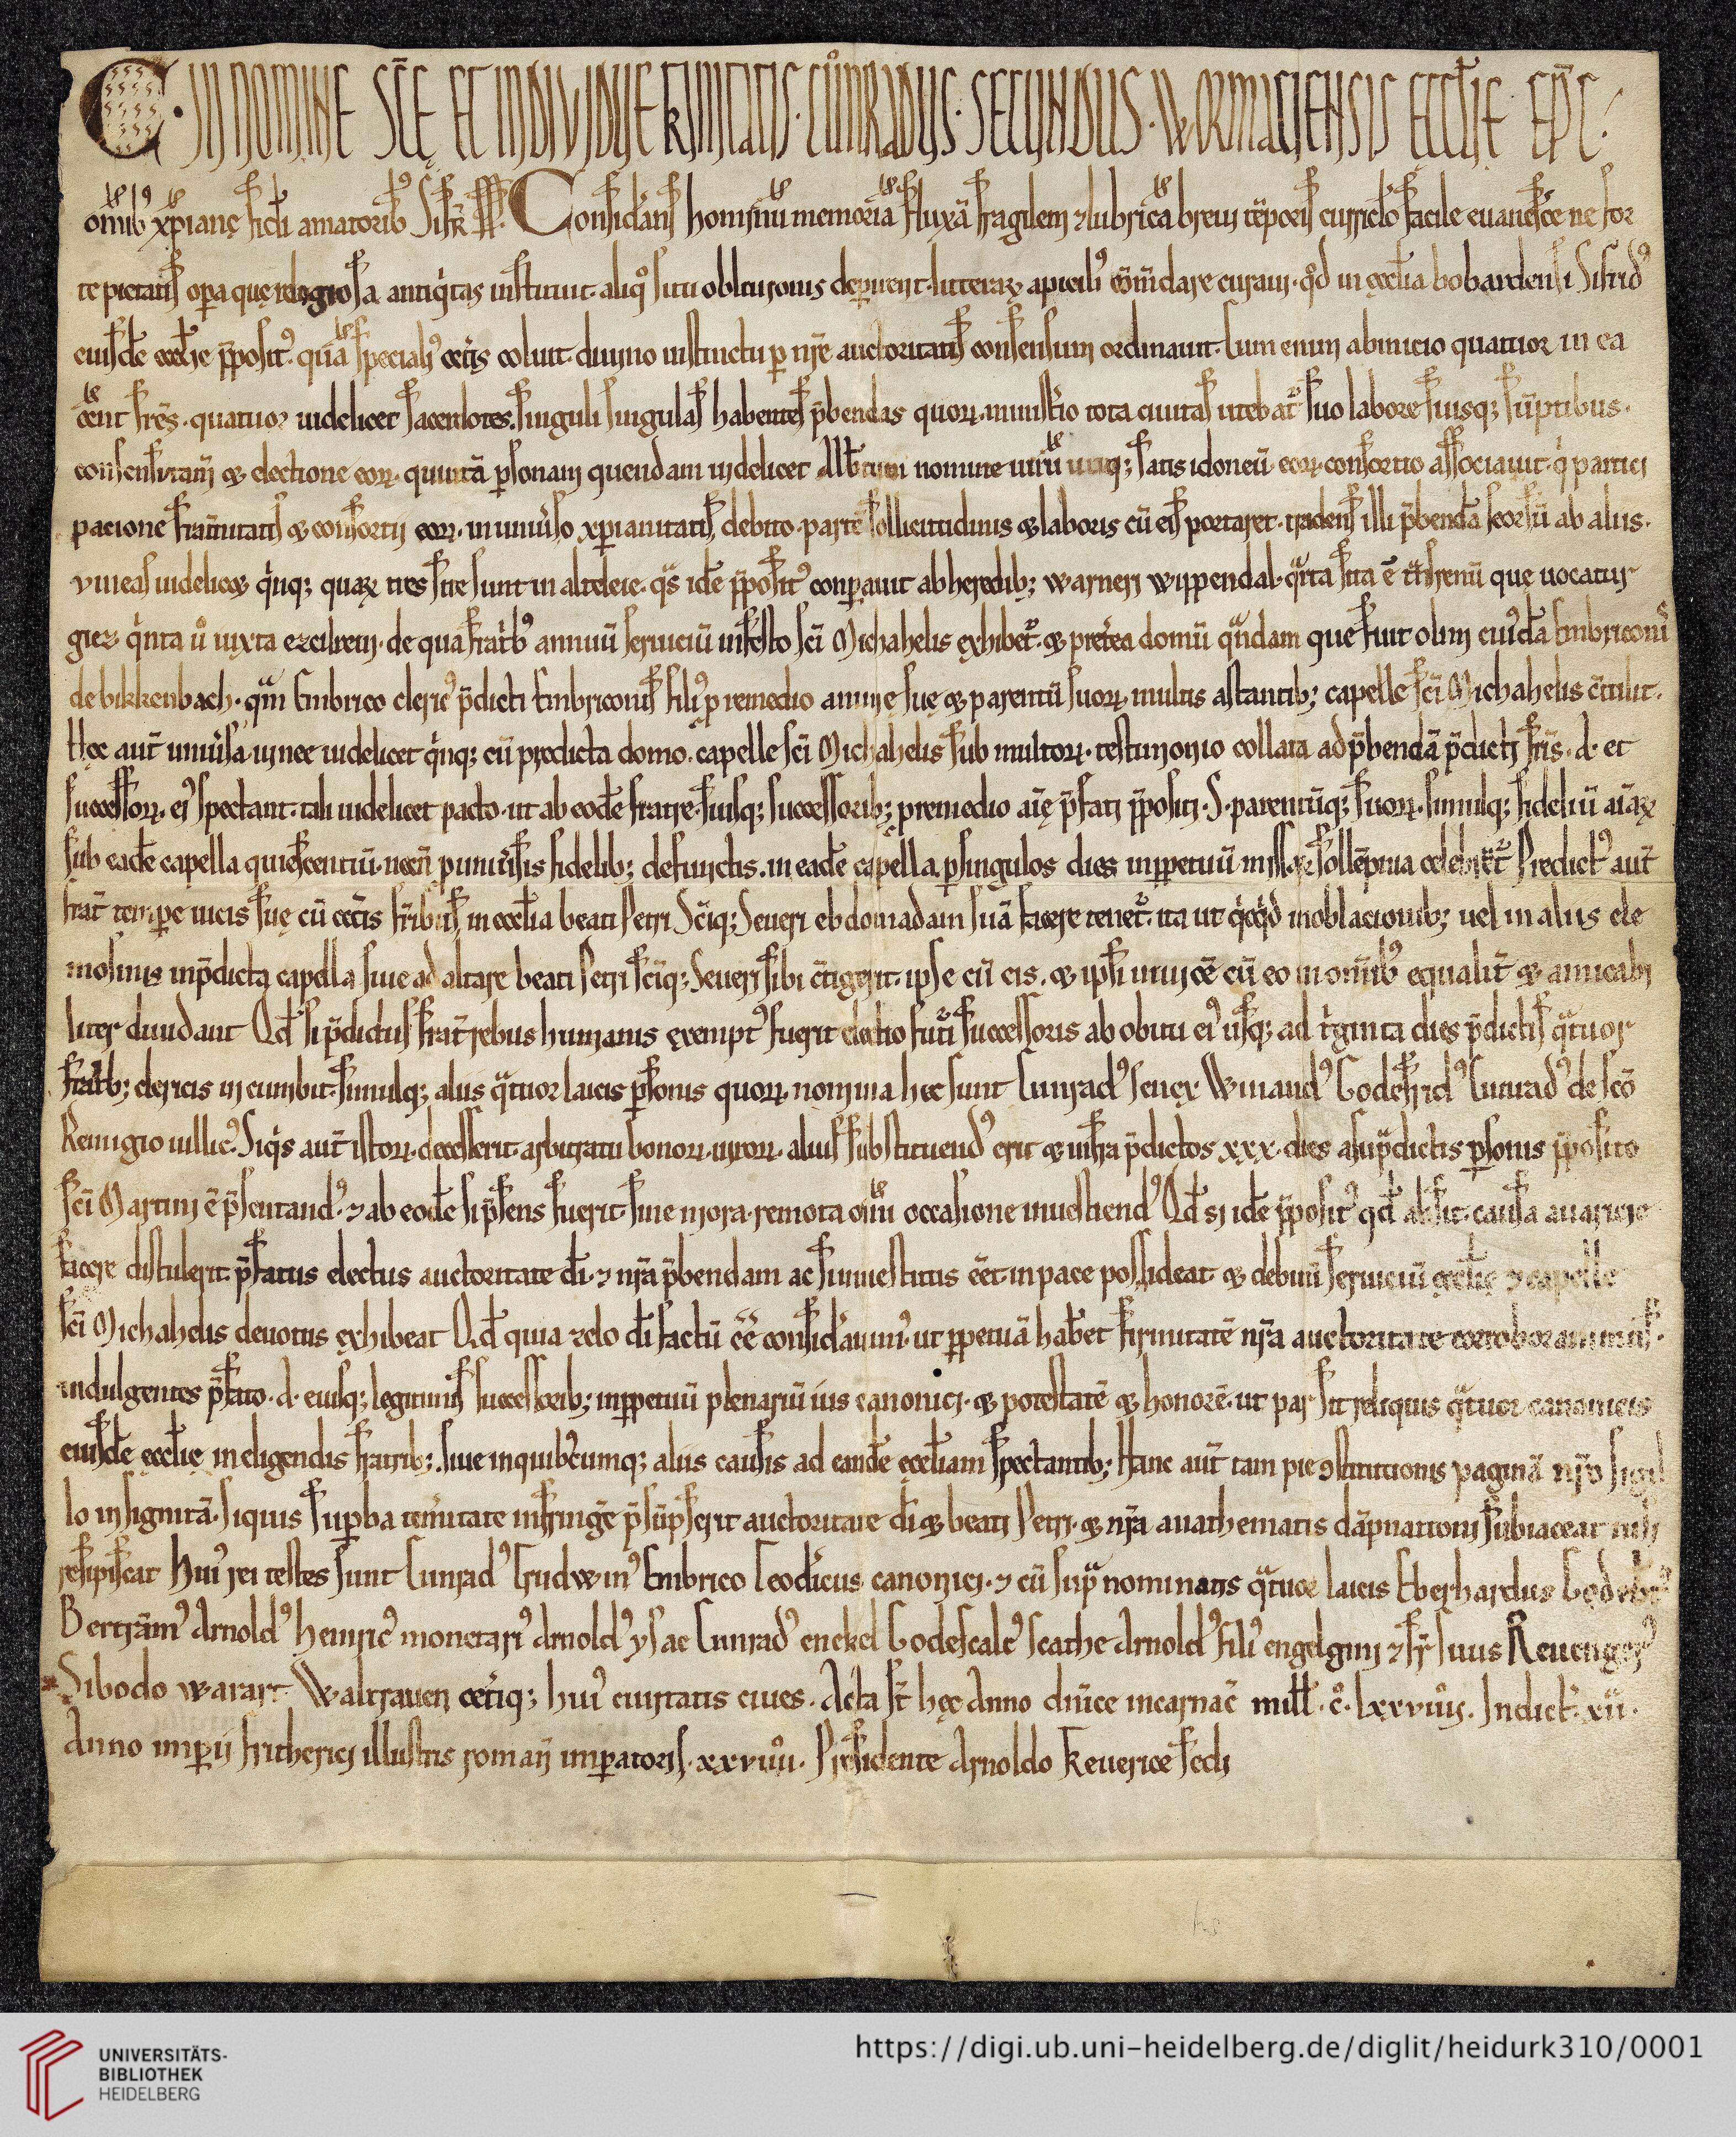 C. IN NOMINE SCE ET INDIVIDUE TRINITATIS. CUONRADUS. SECUNDUS. WORMACIENSIS ECCLIE EPC.
omib xpiane fidei amatorib Considerans hominu memoria fluxa fragilem & lubrica brevi teporis curriclo facile evanesce ne for
te pietatis opa que religiosa antiqitas instituit aliqo situ oblivionis depereant litterarum apicib comdare curavi. qod in ecclia bobardensi Sifrid
eiusde ecclie pposit. qua specialius ceteris coluit. divino instinctu p nre auctoritatis consensum ordinavit. Cum enim abinicio quattuor in ea
eent fres. quatuor videlicet sacerdotes. singuli singulas habentes pbendas quorum ministerio tota civitas utebat suo labore suisq; suptibus.
consensu tam & electione eorum. quinta psonam quendam videlicet nomine viru utiq; satis idoneu. eorum consortio associavit. qi partici
pacione fraternitatis & consortii eorum. in universo xpianitatis debito. parte sollicitudinis & laboris cu eis portaret. tradens illi pbenda seorsu ab aliis.
vineas videlicet qinq; quarum tres site sunt in alteleie. qas ide pposit conparavit ab heredib; warneri wippendal. qarta sita e que vocatur
giez qinta v iuxta ezcilrein. de qua fratrib annuu serviciu in festo sci Michahelis exhibet. & preterea domu qandam que fuit olim cuiusda Embriconis
de bikkenbach. qam Embrico cleric pdicti Embriconis fili p remedio anime sue & parentu suorum multis astantib; capelle sci Michahelis cotulit.
Hec aut universa vinee videlicet qinq; cu predicta domo. capelle sci Michahelis sub multorum. testimonio collata ad pbenda pdicti fris. d. et
successorum. ei spectant. tali videlicet pacto. ut ab eode fratre. suisq; successorib; p remedio aie pfati ppositi. S. parentuq; suorum. simulq; fideliu aiarum
sub eade capella quiescentiu. necn p universis fidelib; defunctis. in eade capella p singulos dies inppetuu missarum sollepnia celebret Predict aut
frat tempore vicis sue cu ceteris fribus in ecclia beati Petri Sciq; Severi ebdomadam sua facere tenet. ita ut qicqid in oblacionib; vel in aliis ele
mosinis in pdicta capella sive ad altare beati Petri sciq; Severi sibi cotigerit. ipse cu eis. & ipsi cu eo in omib equalit & amicabi
liter dividant Qd si pdictus frat rebus humanis exempt fuerit electio futuri successoris ab obitu ei usq; ad triginta dies pdictis qatuor
fratrib; clericis incumbit. simulq; aliis qatuor laicis psonis quorum. nomina hec sunt Cunrad senex Winand Godefrid Cunrad de sco
Remigio villic. Siqis aut istorum. decesserit. arbitratu bonorum. virorum. alius substituend erit & infra pdictos xxx. dies a supdictis psonis pposito
sci Martini e psentand. & ab eode si psens fuerit. sine mora. remota omi occasione investiend Qd si ide pposit qd absit. causa avaricie
facere distulerit. pfatus electus auctoritate di. & nra pbendam ac si investitus eet. in pace possideat. & debitu serviciu ecclie & capelle
sci Michahelis devotus exhibeat Qd quia zelo di factu ee consideravim. ut ppetua habet firmitate nra auctoritate corroboravimus.
indulgentes pfato. d. eiusq; legitimis successorib; inppetuu plenariu ius canonici. & potestate & honore. ut par sit reliquis qatuor canonicis
eiusde ecclie in eligendis fratrib; sive in quibcumq; aliis causis ad eande eccliam spectantib; Hanc aut tam pie constitutionis pagina nro sigil
lo insignita. siquis supba temitate infringe psupserit auctoritate di & beati Petri. & nra anathematis dapnationi subiaceat nisi
resipiscat Hui rei testes sunt Cunrad Embrico Leodicus canonici. & cu supa nominatis qatuor laicis Eberhardus
Bertram Arnold heinric monetari Arnold ysac Cunrad enckel Godescalc scathe Arnold fili engelgini & fr suus
Sibodo warart. Waltraven ceteriq; hui civitatis cives. Acta st hec Anno dnice incarnac mill. c. lxxviiii. Indict. xii.
Anno imperii fritherici illustris romani imperatoris. xxviiii. Presidente Arnoldo Treverice sedi
UNIVERSITÄTS-
BIBLIOTHEK
HEIDELBERG
https://digi.ub.uni-heidelberg.de/diglit/heidurk310/0001